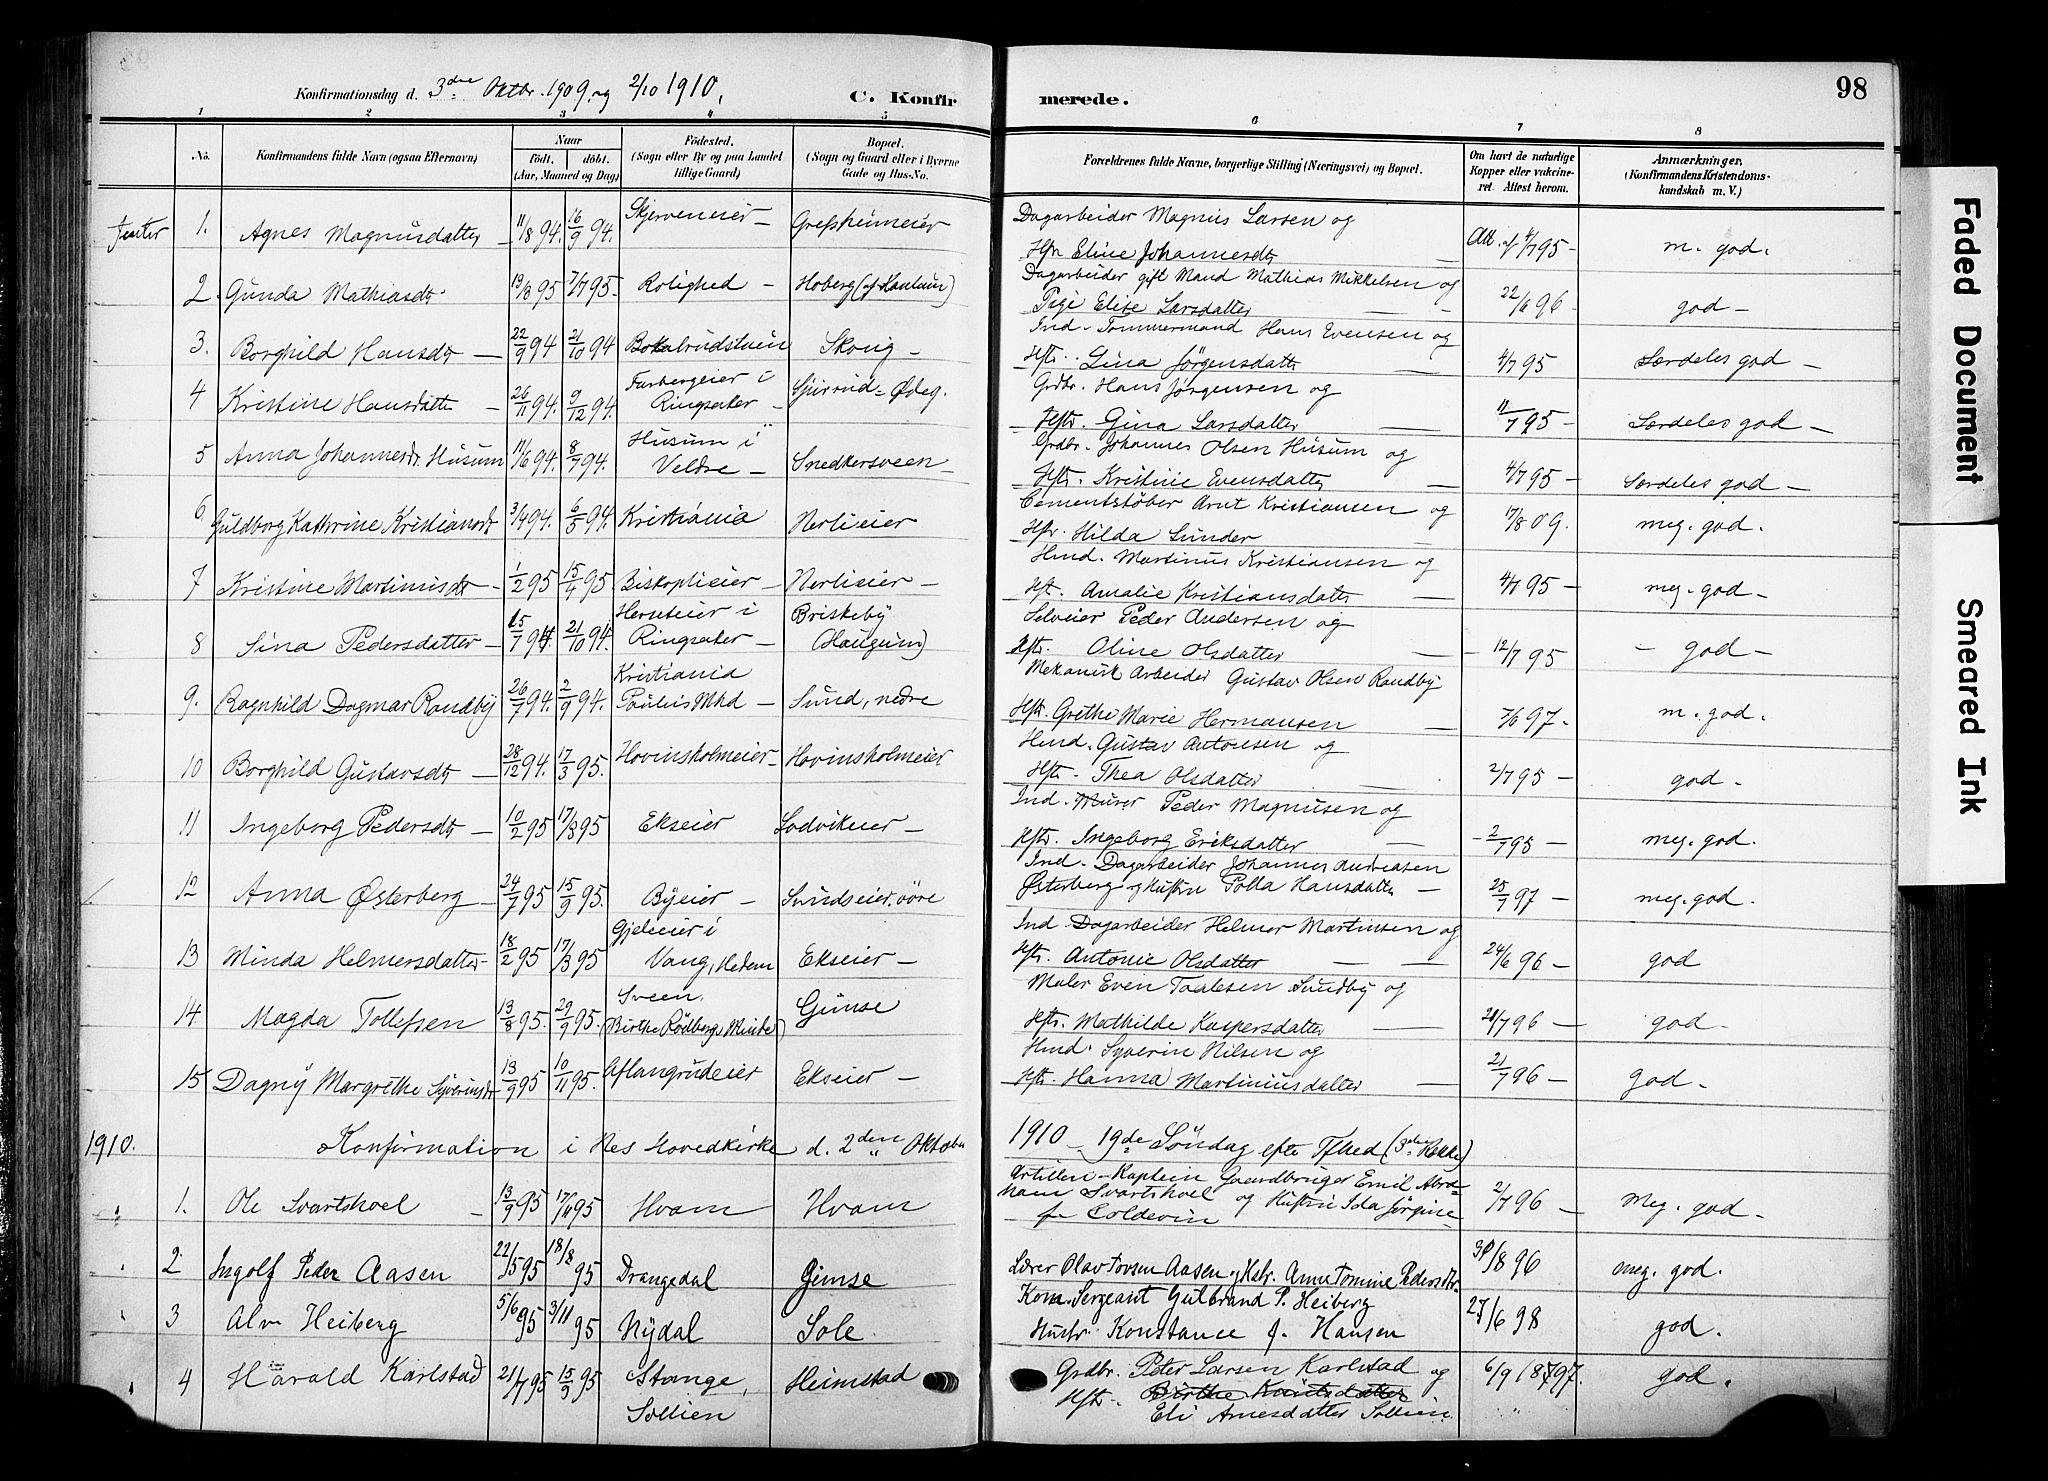 98
Konfirmationsdag d. 3die Oktbr. 1909. og 2/10 1910.
C. Konfirmerede.
1 2 3 4 5 6 7 8
No. Konfirmandens fulde Navn (ogsaa Efternavn)
Naar
født. døbt.
(Aar, Maaned og Dag)
Fødested.
(Sogn eller By og paa Landet
tillige Gaard)
Bopæl.
(Sogn og Gaard eller i Byerne
Gade og Hus-No.
Forældrenes fulde Navne, borgerlige Stilling (Næringsvei) og Bopæl.
Om havt de naturlige
Kopper eller vakcine-
ret. Attest herom.
Anmærkninger,
(Konfirmandens Kristendoms-
kundskab m. V.)
1. Agnes Magnusdatter 11/8 94. 16/9 94. Skjerveneier - Grefsheimeier Dagarbeider Magnus Larsen og
Hfr. Eline Johannesdt. Att. af 4/7 95 - m. god.
2. Gunda Mathiasdt. 13/3 95 7/7 95. Rolighed - Hoberg Dagarbeider gift Mand Mathias Mikkelsen og
Pige Elise Larsdatter 22/6 96 - god -
3. Borghild Hansdt. - 22/9 94 21/10 94 Skoug - Ind. Tømmermand Hans Evensen og
Hstr. Lina Jørgensdatter 4/7 95 Særdeles god -
4 Kristine Hansdatter - 26/11 94. 9/12 94. Furbergeier i
Ringsaker - Sjurrud - Ødeg. Grdbr. Hans Jørgensen og
Hstr. Gina Larsdatter 11/7 95 Særdeles god -
5 Anna Johannesdr. Husum 11/6 94. 8/7 94. Husum i
Veldre - Snedkersveen - Grdbr. Johannes Olsen Husum og
Hstr. Kristine Evensdatter 4/7 95 - Særdeles god -
6 Guldborg Kathrine Kristiansdt. 3/4 94. 6/5 94. Kristiania Nerlieier Cementstøber Arnt Kristiansen og
Hfr. Hilda Sunder 17/8 09. meg. god.
7 Kristine Martinusdt. - 1/2 95 15/4 95 Biskoplieier - Nerlieier - Hmd. Martinus Kristiansen og
Hst. Amalie Kristiansdatter 4/7 95 - meg. god -
8 Sina Pedersdatter - 15/7 94. 21/10 94. Herseteier i
Ringsaker - Briskeby
(Haugum) Selveier Peder Andersen og
Hstr. Oline Olsdatter - 12/7 95 - god -
9. Ragnhild Dagmar Randby 26/7 94. 2/9 94. Kristiania
Paulus Mhd - Sund, nedre Mekanisk Arbeider Gustav Olsen Randby
Hstr. Grethe Marie Hermansen - 7/6 97. m. god.
10 Borghild Gustavsdt. - 28/12 94. 17/3 95. Hovinsholmeier - Hovinsholmeier Hmd. Gustav Antonsen og
Hstr. Thea Olsdatter 2/7 95 - god -
11 Ingeborg Pedersdt. - 10/2 95 17/3 95 Ekseier Lodvikeier - Ind. Murer Peder Magnusen og
Hstr. Ingeborg Eriksdatter - 2/7 95 - meg. god.
12 Anna Østerberg - 24/7 95 15/9 95. Byeier - Sundseier, øvre Ind. Dagarbeider Johannes Andreasen
Østerberg og Hustru Polla Hansdatter - 25/7 97 - meg. god.
13 Minda Helmersdatter - 18/2 95 17/3 95 Gjelieier i
Vang, Hedem Ekseier - Ind. Dagarbeider Helmer Martinsen og
Hstr. Antonie Olsdatter - 24/6 96 - god
14 Magda Tollefsen 13/8 95. 29/9 95. Sveen.
(Birthe Rødbergs Minde) Gimse Maler Even Taalesen Sundby og
Hstr. Mathilde Kaspersdatter 20/7 96 - god -
15 Dagny Margrethe Syverinsdt. 13/9 95 10/11 95. Aflangrudeier Ekseier - Hmd. Syverin Nilsen og
Hstr. Hanna Martiniusdatter - 21/7 96 - god -
1910. Konfirmation i Nes Hovedkirke d. 2den Oktober 1910 - 19de Søndag efter Tfhed (3die Række)
1. Ole Svartskoel - 13/9 95 17/11 95 Hvam Hvam Artilleri-Kaptein Gaardbruger Emil Abra-
ham Svartskoel og Hustru Ida Jørgine
f. Coldevin 2/7 96 - Meg. god -
2 Ingolf Peder Aasen 22/5 95 18/8 95 Drangedal Gimse Lærer Olav Tovsen Aasen og Hstr. Anne Tomine Pedersdtr. 31/8 96 meg. god.
3 Alv Heiberg 5/6 95 3/11 95 Nydal Sole. Kom. Sergeant Gulbrand P. Heiberg
Hustr. Konstance f. Hansen 27/6 98 god.
4 Harald Karlstad 21/7 95 15/9 95 Stange,
Sollien Heimstad Grdbr. Peter Larsen Karlstad og
Hstr. Birthe Knutsdatter
Eli Arnesdatter Sollien 6/9 1897. god.
Faded Document
Smeared Ink